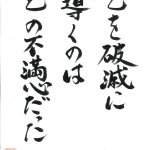 己を破滅に
導くのは
己の不満心だった